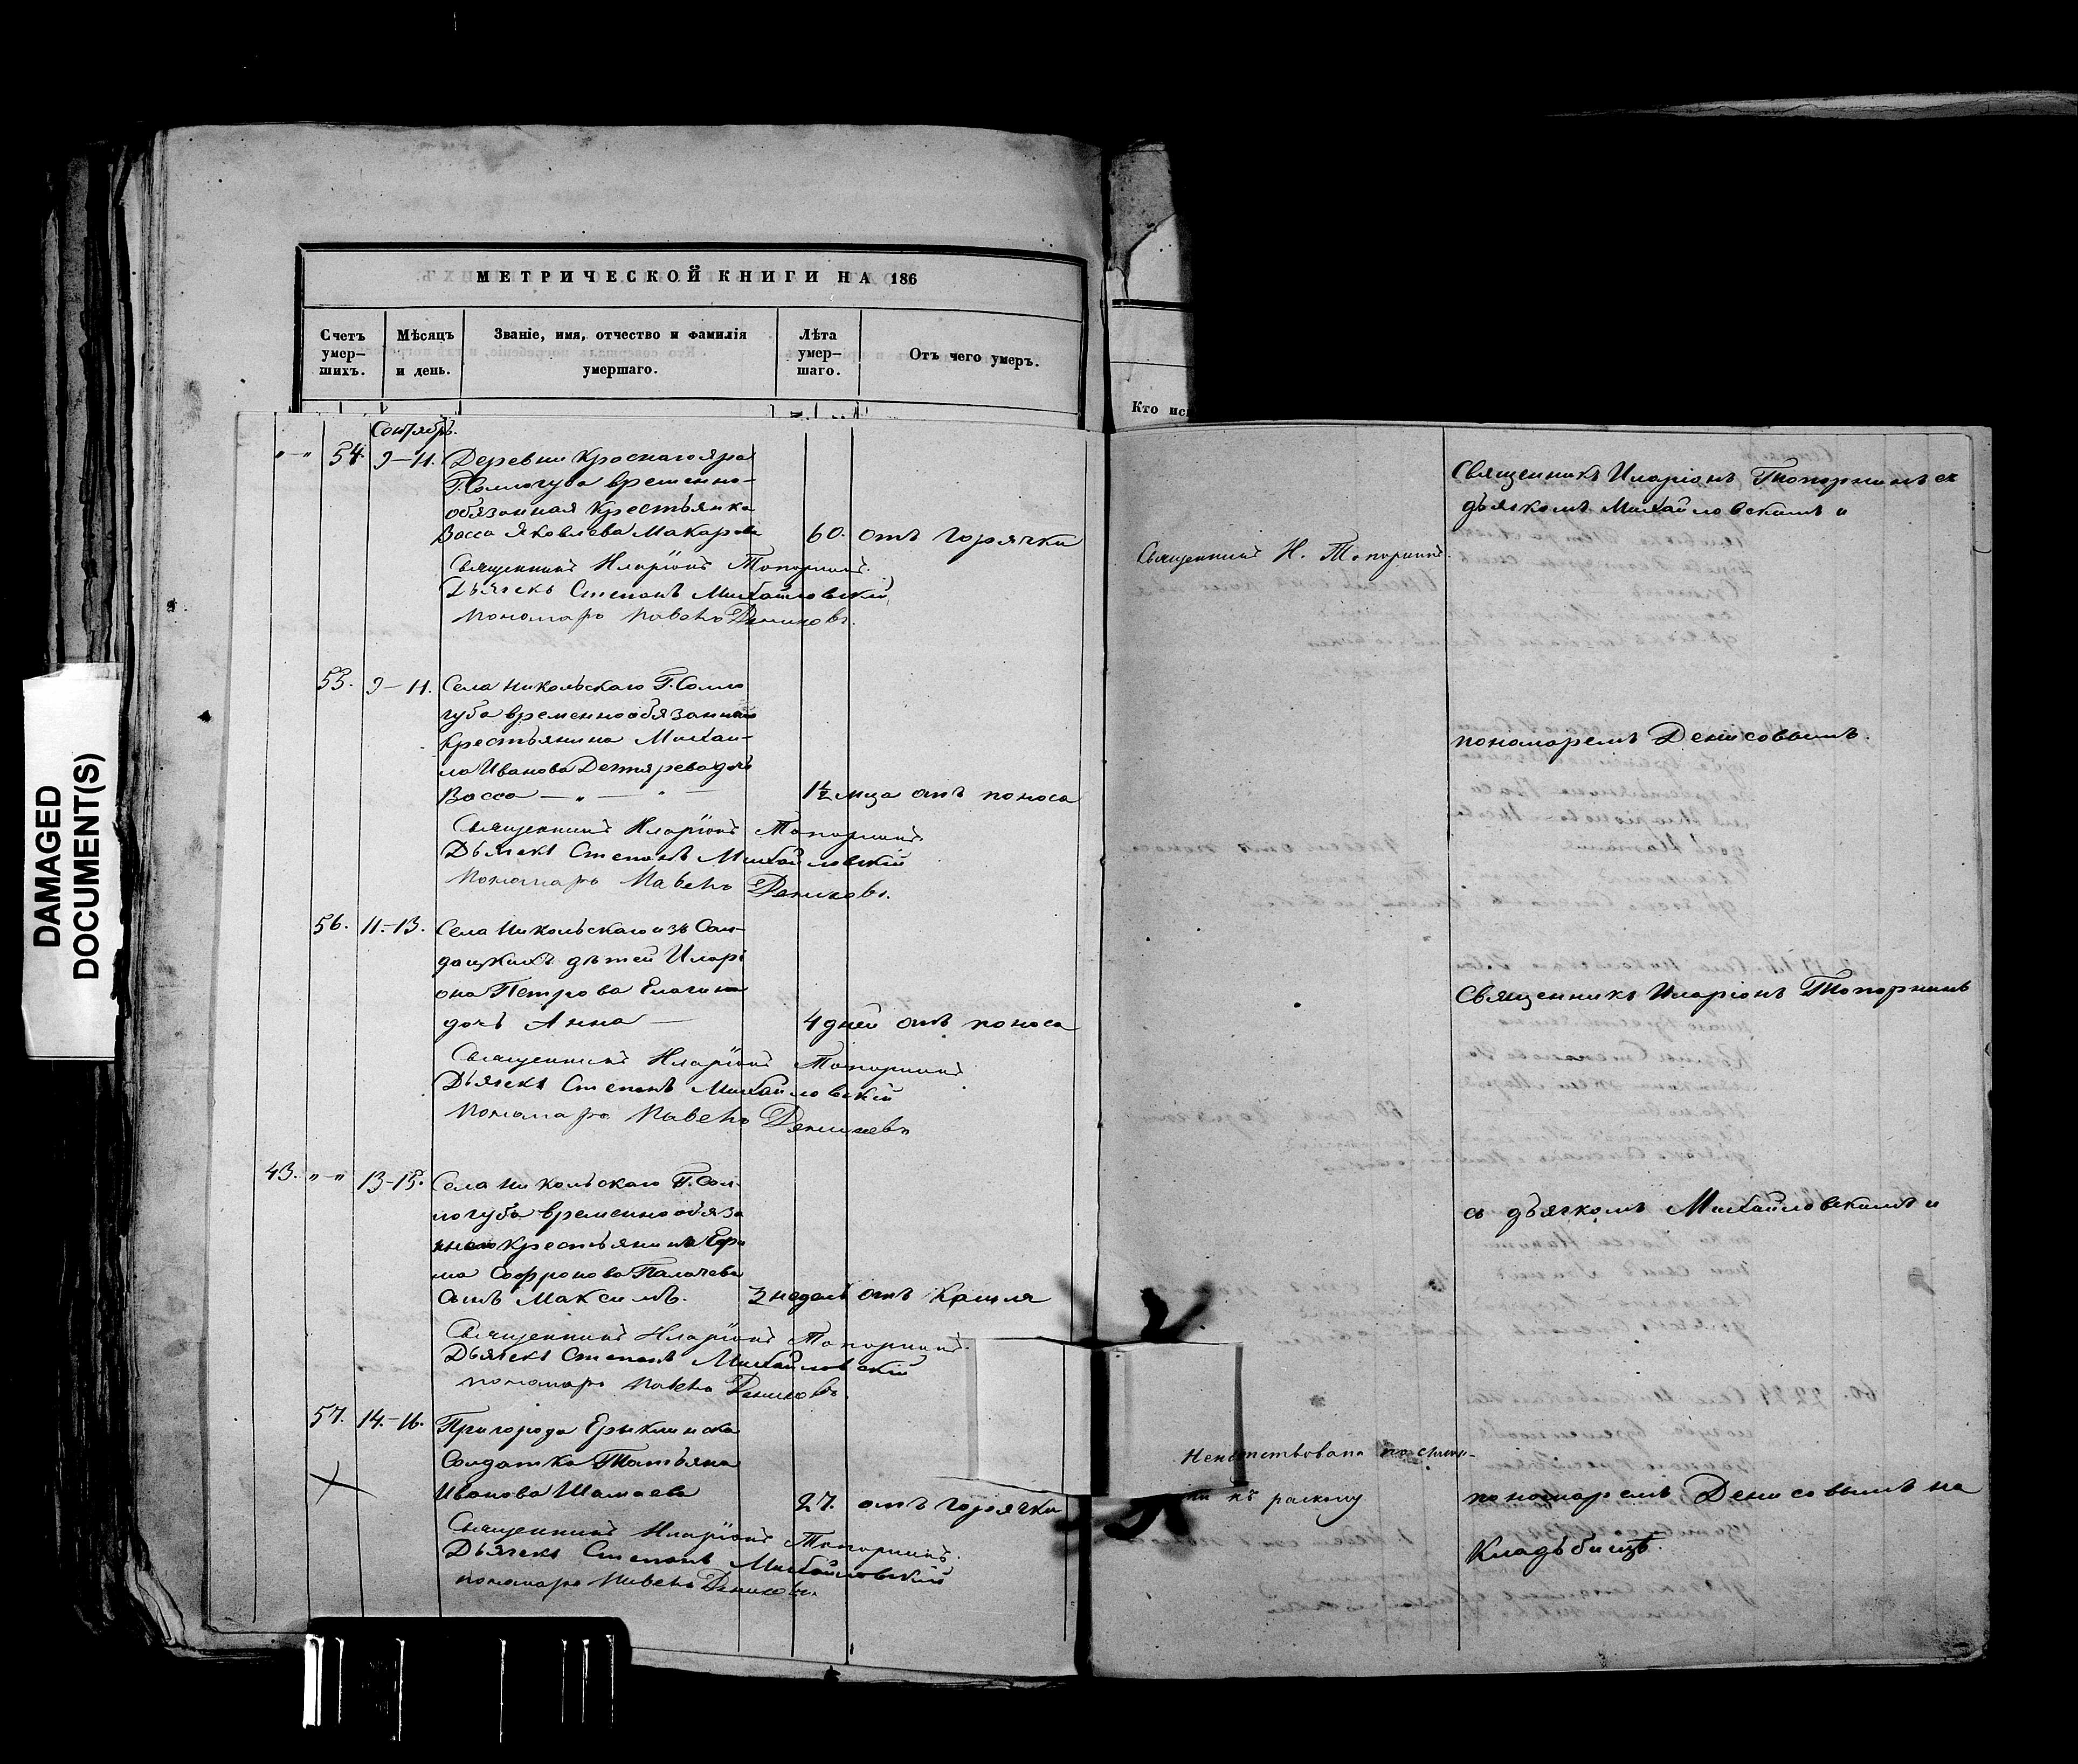 МЕТРИЧЕСКОЙ КНИГИ НА 186
Счетъ умер— шихъ.
Мѣсяцъ и день.
Званіе, имя, отчество и фамилія умершаго.
Лѣта умер— шаго.
Отъ чего умеръ.
Кто ис
DAMAGED
DOCUMENT(S)
Сентябрь.
„ — „ 54. 9—11. Деревни Краснаго яра
Г. Сологуба временно-
обязанная крестьянка
Васса Яковлева Макарова 60. отъ горячки
Священникъ Иларіонъ Топорнинъ.
Дьячекъ Степанъ Михайловскій,
Пономарь Павелъ Денисовъ.
55. 9—11. Села Никольскаго Г. Солло
губа временнообязаннаго
крестьянина Михаи-
ла Иванова Дехтярева дочь
Васса — „ — „ — 1½ мца отъ поноса
Священникъ Иларіонъ Топорнинъ
Дьячекъ Степанъ Михайловскій
Пономарь Павелъ Денисовъ.
56. 11.—13. Села Никольскаго изъ Сол-
дацкихъ дѣтей Иларі
она Петрова Елагина
дочь Анна — 4 дней отъ поноса
Священникъ Иларіонъ Топорнинъ
Дьячекъ Степанъ Михайловскій
Пономарь Павелъ Денисовъ
43. „ — „ 13—15. Села Никольскаго Г. Сол-
логуба временнообяза
ннаго крестьянина
Софронова
сынъ Максимъ. 3 недель отъ кашля
Священникъ Иларіонъ Топорнинъ.
Дьячекъ Степанъ Михайловскій
пономарь Павелъ Денисовъ.
57. 14.—16. Пригорода Ерыклинска
Солдатка Татьяна
Иванова Шамаева 27. отъ горячки
Священникъ Иларіонъ Топорнинъ.
Дьячекъ Степанъ Михайловскій
пономарь Павелъ Денисовъ.
Священникъ И. Топорнинъ.
къ расколу
Священникъ Иларіонъ Топорнинъ съ
дьячкомъ Михайловскимъ и
пономаремъ Денисовымъ.
Священникъ Иларіонъ Топорнинъ
съ дьячкомъ Михайловскимъ и
пономаремъ Денисовымъ на
Кладъбищѣ.